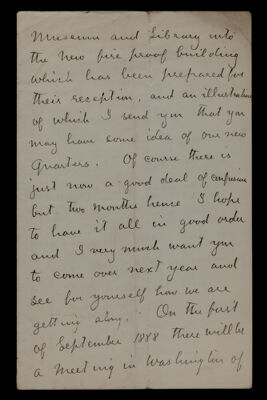 Museum and Library into
the new fire proof building
which has been prepared for
their reception, and an illustration
of which I send you that you
may have some idea of our new
Quarters. Of course there is
just now a good deal of confusion
but two months hence I hope
to have it all in good order
and I very much want you
to come over next year and
see for yourself how we are
getting along. On the first
of September 1888 there will be
a meeting in Washington of